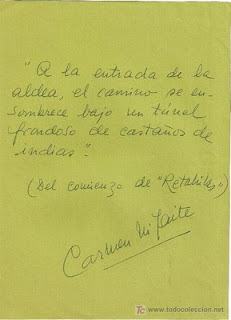 "A la entrada de la
aldea, el camino se en-
sombrece bajo un túnel
frondoso de castaños de
indias".
(Del comienzo de "Retahílas")
Carmen M. Gaite
www.todocoleccion.net